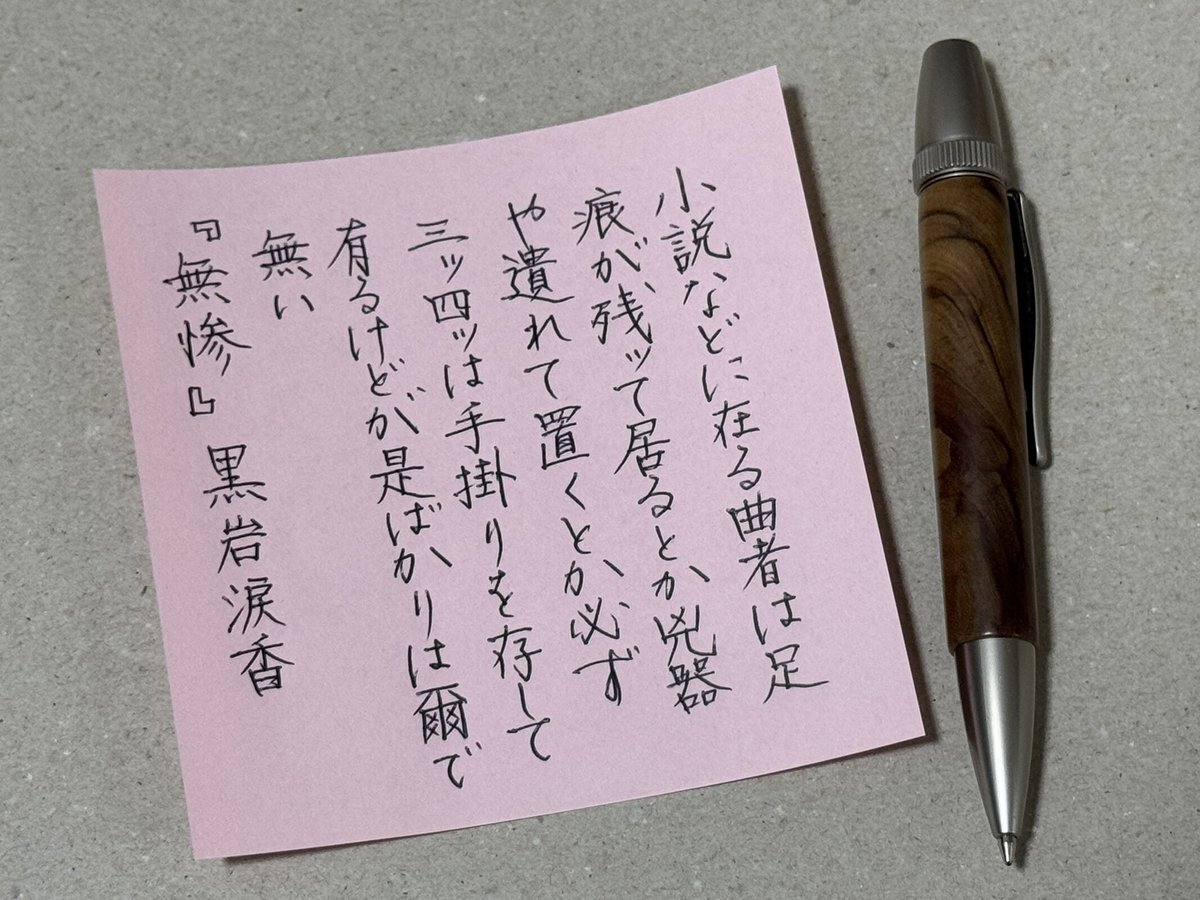 小説などに在る曲者は足
痕が残ッて居るとか兇器
や遺れて置くとか必ず
三ッ四ッは手掛りを存して
有るけどが是ばかりは爾で
無い
『無惨』黒岩涙香